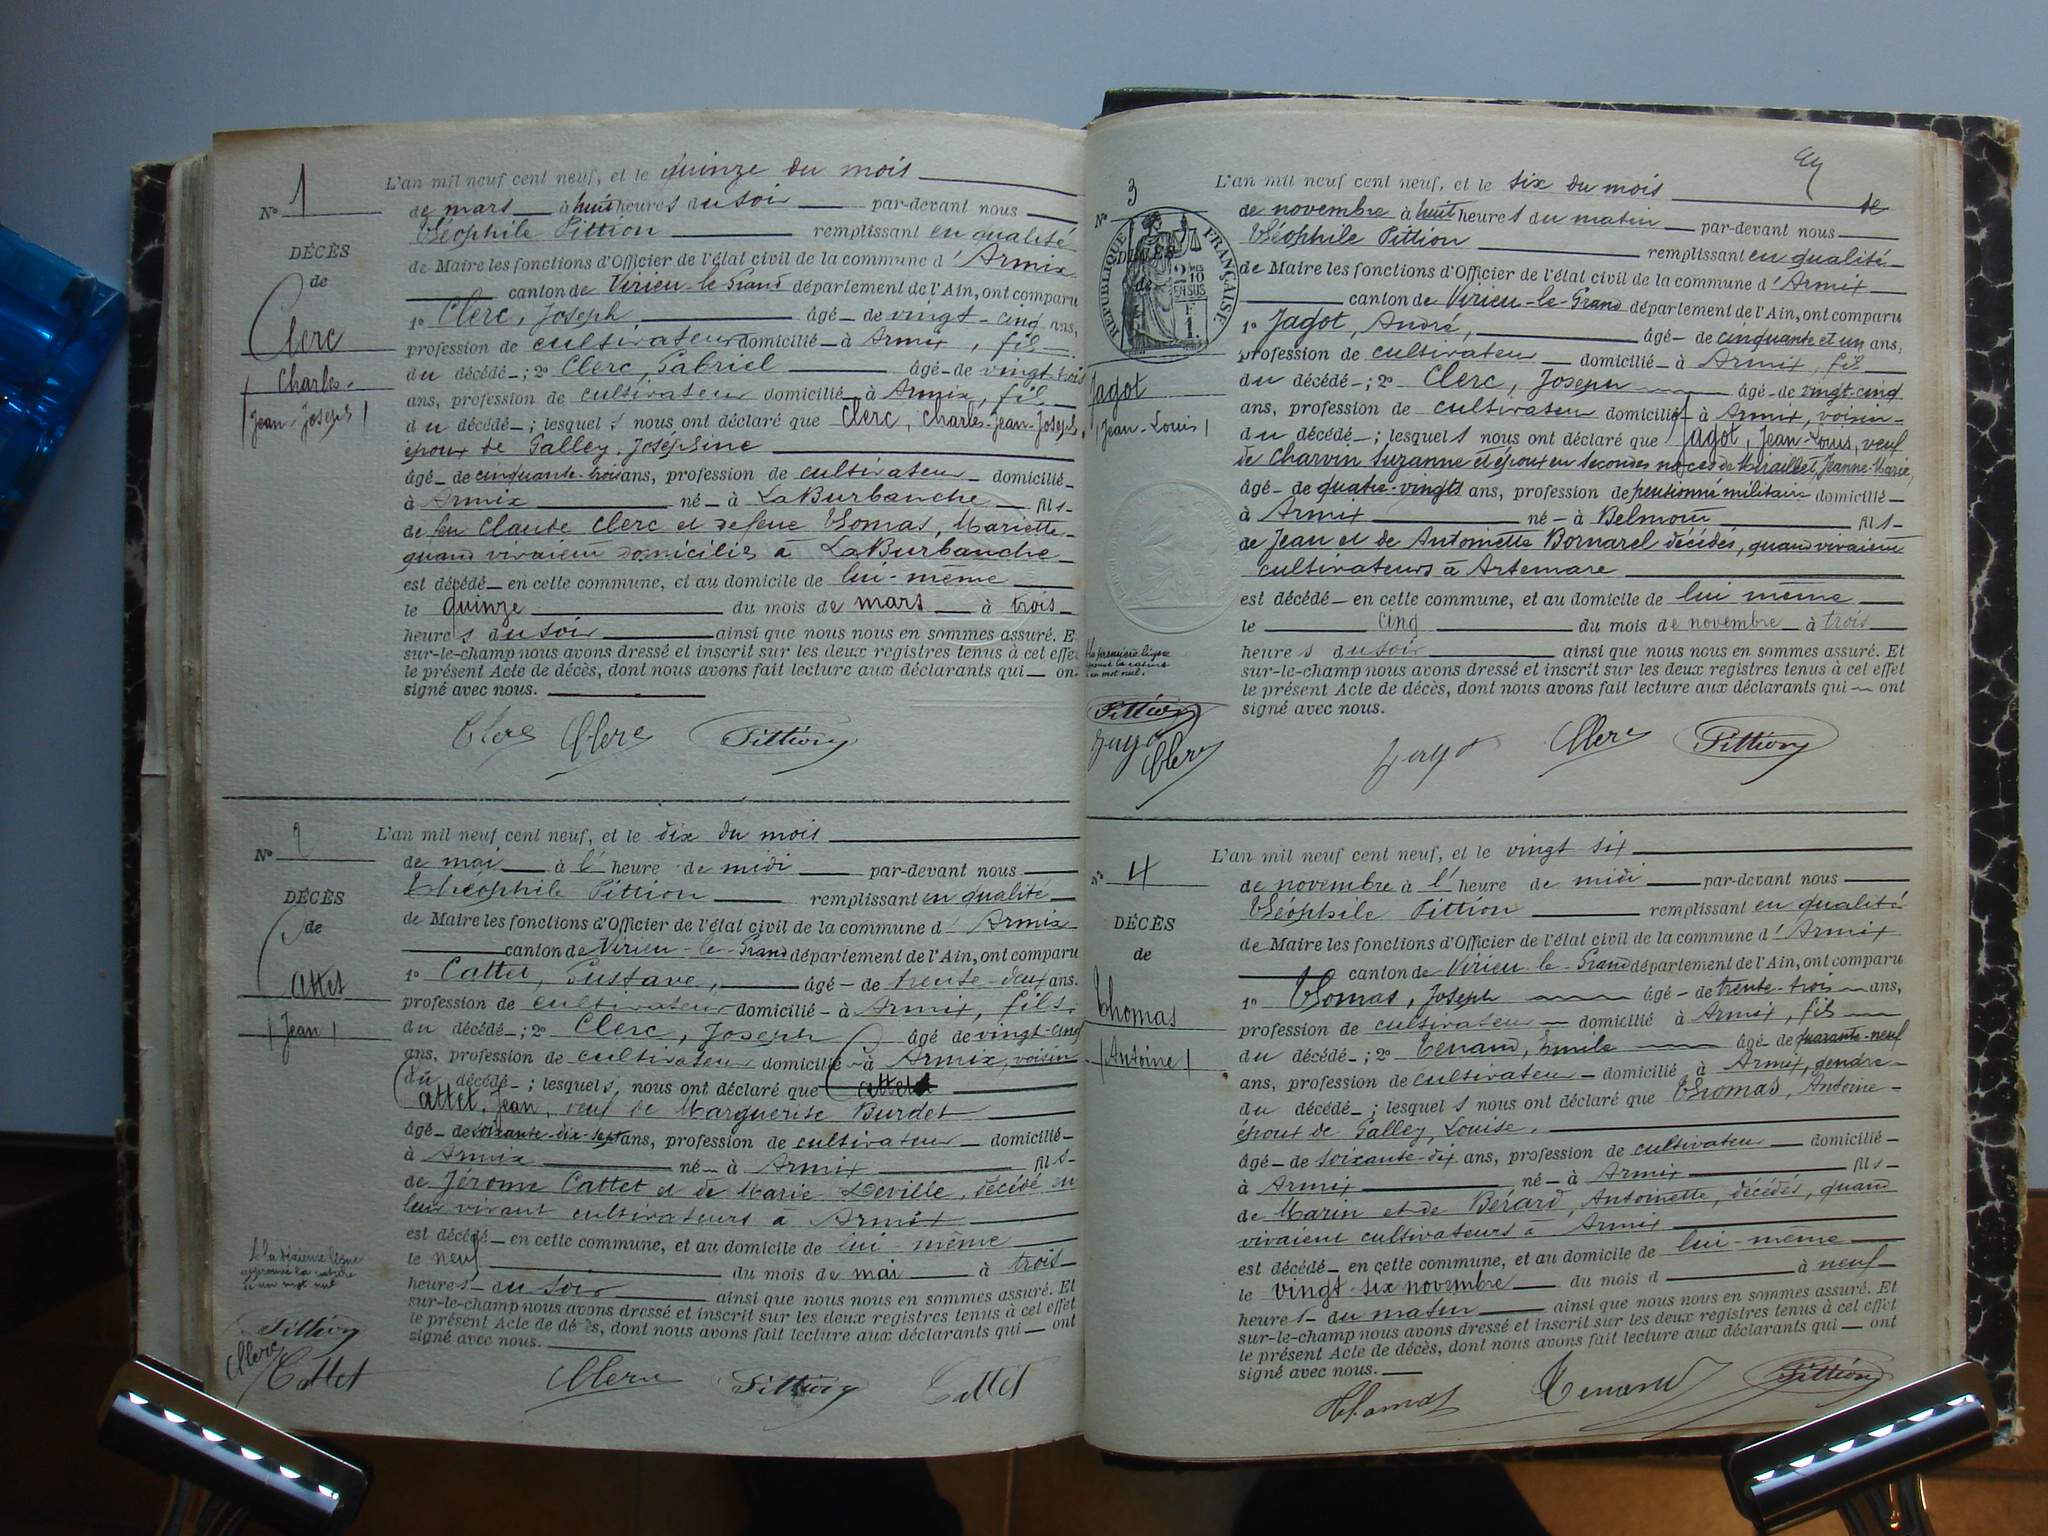 1
L'an mil neuf cent neuf, et le quinze du mois
N°
de mars à huit heures du soir par-devant nous
Théophile Pittion remplissant en qualité
DÉCÈS
de Maire les fonctions d'Officier de l'état civil de la commune d'Armix
de
canton de Virieu-le-Grand département de l'Ain, ont comparu
1° Clerc, Joseph âgé de vingt-cinq ans,
Clerc
profession de cultivateur domicilié à Armix, fils
du décédé ; 2° Clerc, Gabriel âgé de vingt trois
Charles
ans, profession de cultivateur domicilié à Armix, fils
Jean-Joseph
du décédé ; lesquels nous ont déclaré que Clerc, Charles-Jean-Joseph,
époux de Galley, Joséphine
âgé de cinquante-trois ans, profession de cultivateur domicilié
à Armix né à La Burbanche fils
de feu Claude Clerc et de feue Thomas, Mariette
quand vivaient domiciliés à La Burbanche
est décédé en cette commune, et au domicile de lui-même
le quinze du mois de mars à trois
heures du soir ainsi que nous nous en sommes assuré. E
sur-le-champ nous avons dressé et inscrit sur les deux registres tenus à cet effe
le présent Acte de décès, dont nous avons fait lecture aux déclarants qui on
signé avec nous.
Clerc Clerc Pittion
2
L'an mil neuf cent neuf, et le dix du mois
N°
de mai à l'heure de midi par-devant nous
Théophile Pittion remplissant en qualité
DÉCÈS
de Maire les fonctions d'Officier de l'état civil de la commune d'Armix
de
canton de Virieu-le-Grand département de l'Ain, ont comparu
Cattet
1° Cattet, Gustave, âgé de trente-deux ans.
profession de cultivateur domicilié à Armix, fils
Jean
du décédé ; 2° Clerc, Joseph âgé de vingt-cinq
ans, profession de cultivateur domicilié à Armix, voisin
du décédé ; lesquels nous ont déclaré que Cattet
Cattet, Jean, veuf de Marguerite Burdet
âgé de soixante-dix-sept ans, profession de cultivateur domicilié
à Armix né à Armix fils
de Jérôme Cattet et de Marie Deville, décédé en
leur vivant cultivateurs à Armix
est décédé en cette commune, et au domicile de lui-même
le neuf du mois de mai à trois
heures du soir ainsi que nous nous en sommes assuré. Et
sur-le-champ nous avons dressé et inscrit sur les deux registres tenus à cet effet
le présent Acte de décès, dont nous avons fait lecture aux déclarants qui ont
signé avec nous.
A la dixième ligne
approuvé la rature
d'un mot nul
Pittion
Clerc
Cattet
Clerc Pittion Cattet
3
L'an mil neuf cent neuf, et le six du mois de
N°
de novembre à huit heures du matin par-devant nous
Théophile Pittion remplissant en qualité
DÉCÈS
de
RÉPUBLIQUE FRANÇAISE
2 10
EN SUS
1
de Maire les fonctions d'Officier de l'état civil de la commune d'Armix
canton de Virieu-le-Grand département de l'Ain, ont comparu
1° Jagot, André, âgé de cinquante et un ans,
profession de cultivateur domicilié à Armix, fils
Jagot
du décédé ; 2° Clerc, Joseph âgé de vingt-cinq
Jean-Louis
ans, profession de cultivateur domicilié à Armix, voisin
du décédé ; lesquels nous ont déclaré que Jagot, Jean-Louis, veuf
de Charvin Suzanne et époux en secondes noces de Jeanne-Marie,
âgé de quatre-vingts ans, profession de pentionné militaire domicilié
à Armix né à Belmont fils
de Jean et de Antoinette Bornarel décédés, quand vivaient
cultivateurs à Artemare
est décédé en cette commune, et au domicile de lui même
le cinq du mois de novembre à trois
heures du soir ainsi que nous nous en sommes assuré. Et
sur-le-champ nous avons dressé et inscrit sur les deux registres tenus à cet effet
le présent Acte de décès, dont nous avons fait lecture aux déclarants qui ont
signé avec nous.
la première ligne
approuvé la rature
d'un mot nul.
Pittion
Jagot
Clerc
Jagot Clerc Pittion
4
L'an mil neuf cent neuf, et le vingt six
N°
de novembre à l'heure de midi par-devant nous
Théophile Pittion remplissant en qualité
DÉCÈS
de Maire les fonctions d'Officier de l'état civil de la commune d'Armix
de
canton de Virieu-le-Grand département de l'Ain, ont comparu
Thomas
1° Thomas, Joseph âgé de trente-trois ans,
profession de cultivateur domicilié à Armix, fils
Antoine
du décédé ; 2° Tenand, Emile âgé de quarante-neuf
ans, profession de cultivateur domicilié à Armix, gendre
du décédé ; lesquels nous ont déclaré que Thomas, Antoine
époux de Galley, Louise,
âgé de soixante-dix ans, profession de cultivateur domicilié
à Armix né à Armix fils
de Marin et de Bérard, Antoinette, décédés, quand
vivaient cultivateurs à Armix
est décédé en cette commune, et au domicile de lui-même
le vingt-six novembre du mois d à neuf
heures du matin ainsi que nous nous en sommes assuré. Et
sur-le-champ nous avons dressé et inscrit sur les deux registres tenus à cet effet
le présent Acte de décès, dont nous avons fait lecture aux déclarants qui ont
signé avec nous.
Thomas Tenand Pittion